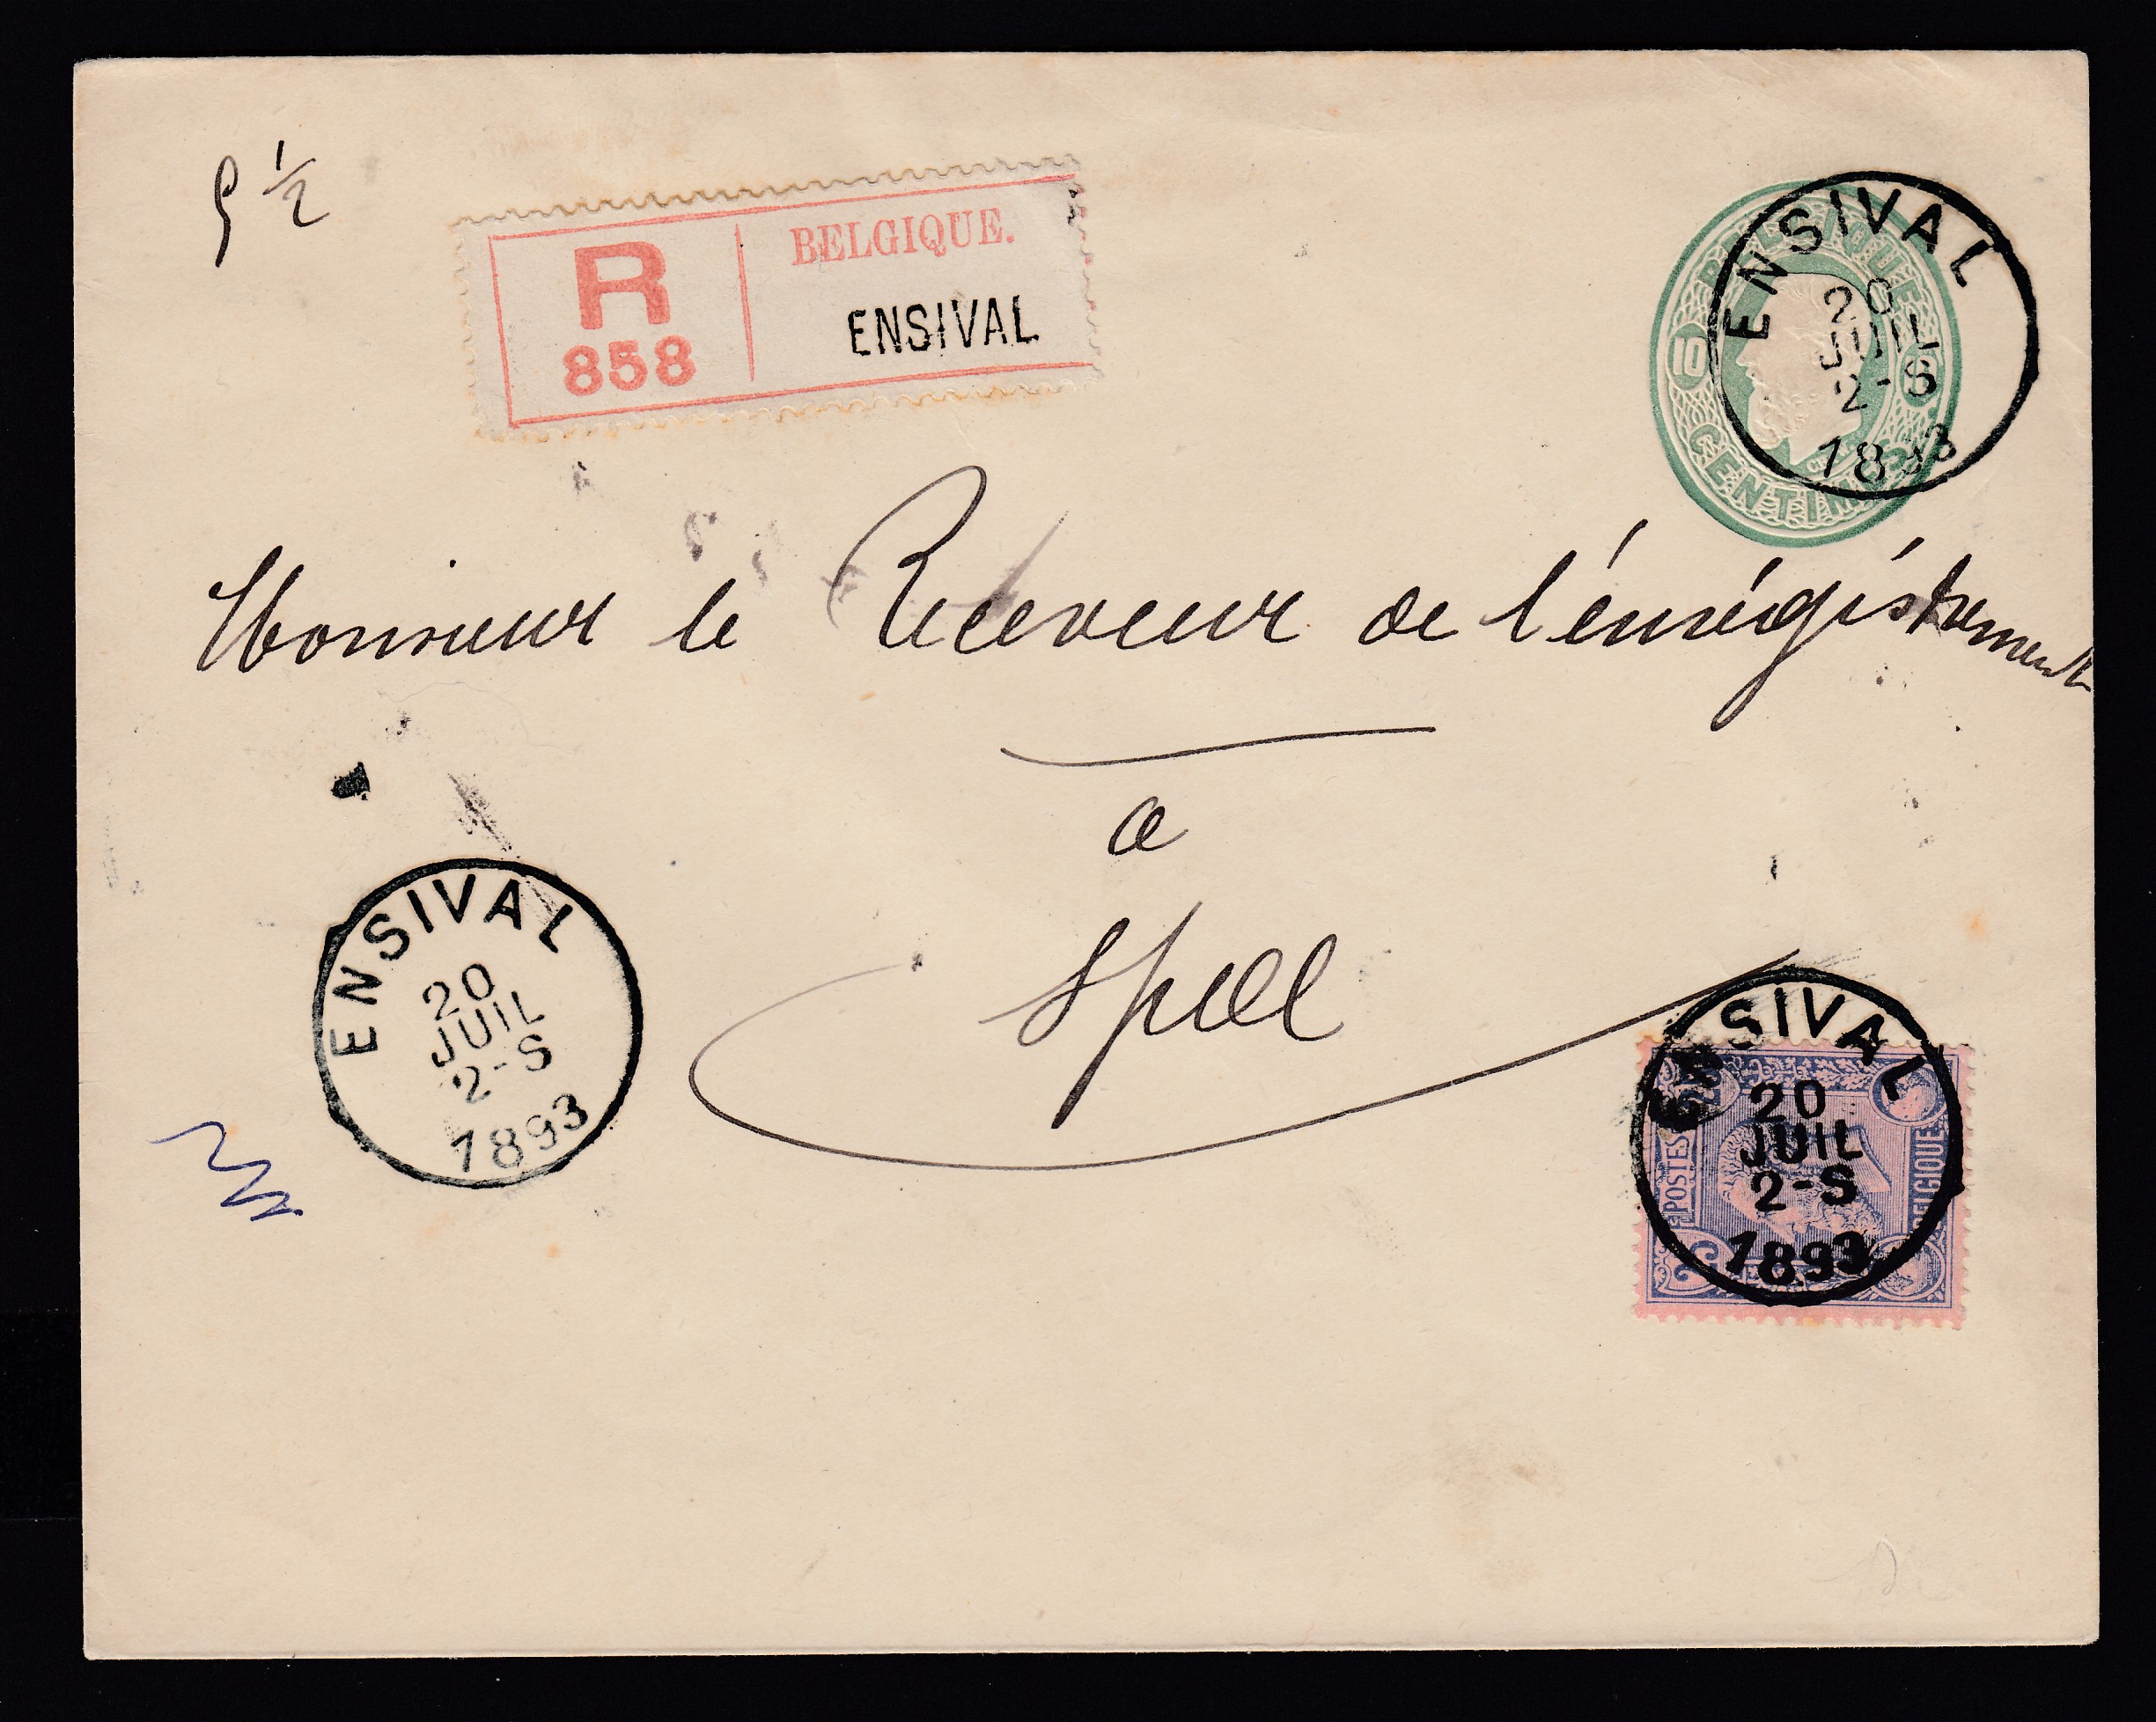 9 1/2
R
858
BELGIQUE.
ENSIVAL
BELGIQUE
10
CENTIMES
ENSIVAL
20
JUIL
2-S
1893
Monsieur le Receveur de l'énrégistrement
a
Spa
ENSIVAL
20
JUIL
2-S
1893
ENSIVAL
20
JUIL
2-S
1893
POSTES
BELGIQUE
25